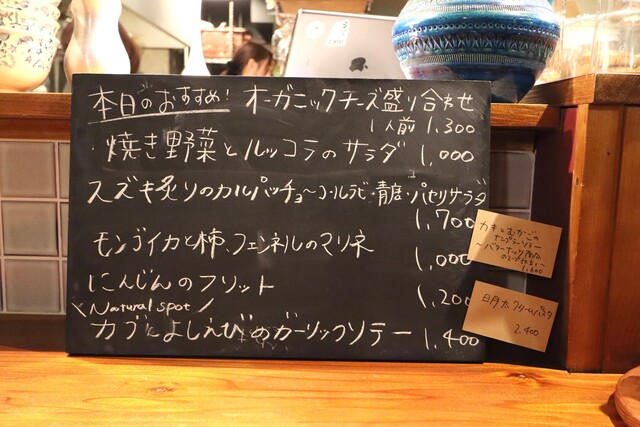 本日のおすすめ! オーガニックチーズ盛り合わせ
1人前 1,300
・焼き野菜とルッコラのサラダ 1,000
スズキ炙りのカルパッチョ〜コールラビ・青大・パセリサラダ
1,700
モンゴイカと柿、フェンネルのマリネ 1,000
にんじんのフリット 1,200
\Natural spot/
カブとよしえびのガーリックソテー 1,400
カキとむかごの
〜バターナッツ
1,600
クリームパスタ
2,400